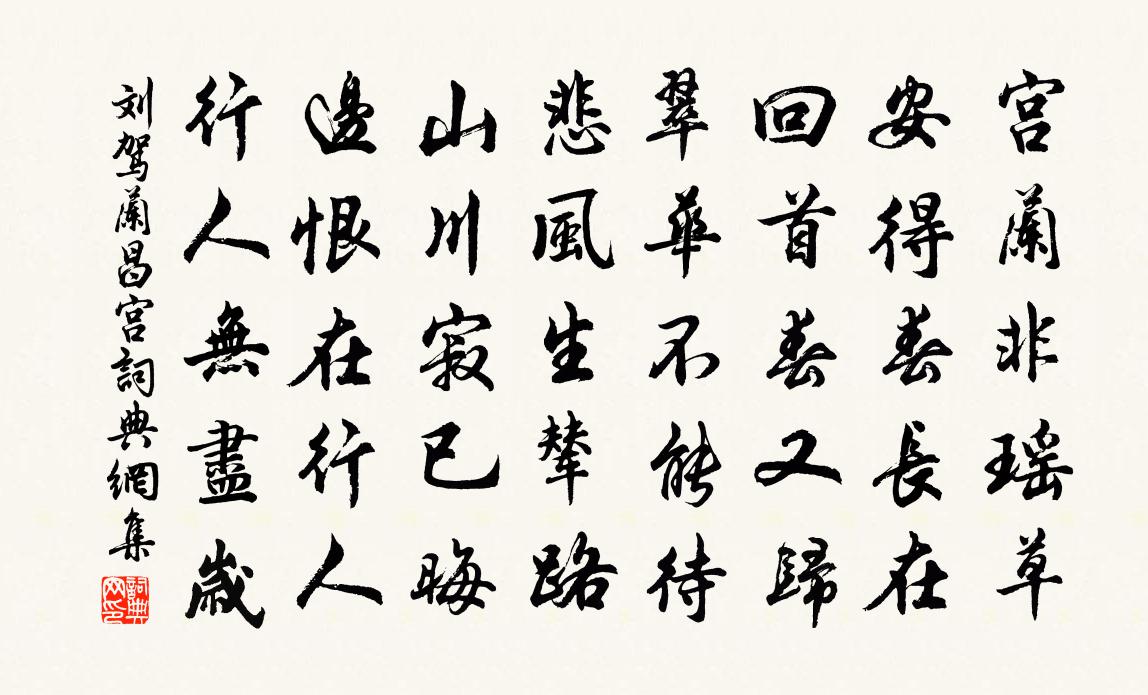 宫蘭非瑶草
安得春長在
回首春又歸
翠華不能待
悲風生輦路
山川寂已晦
邊恨在行人
行人無盡歳
刘驾蘭昌宫詞典網集
詞典網印